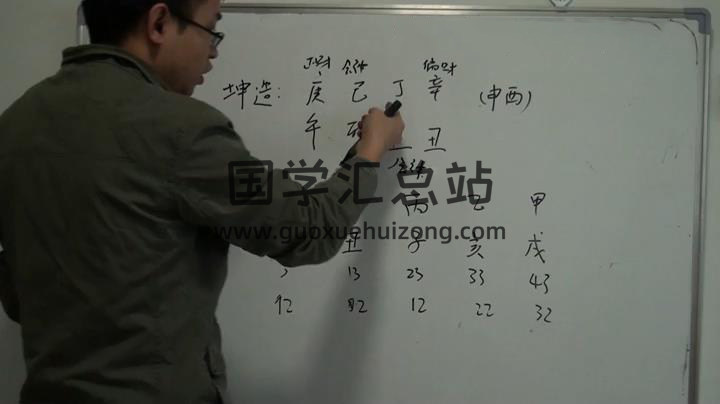 正财 食神 偏财
坤造: 庚 己 丁 辛 (申酉)
午 丑
国学汇总站
丙 甲
www.guoxuehuizong.com
丑 子 亥 戌
3 13 23 33 43
92 02 12 22 32